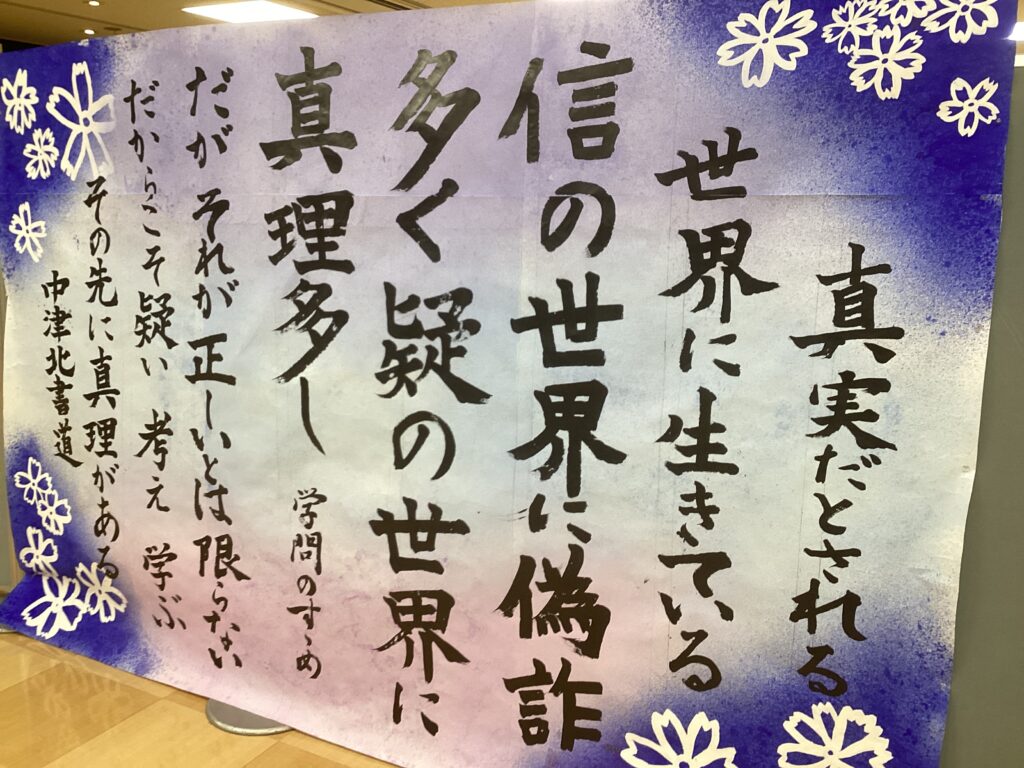 真実だとされる
世界に生きている
信の世界に偽詐
多く疑の世界に
真理多し
学問のすゝめ
だが それが正しいとは限らない
だからこそ疑い 考え 学ぶ
その先に真理がある
中津北書道